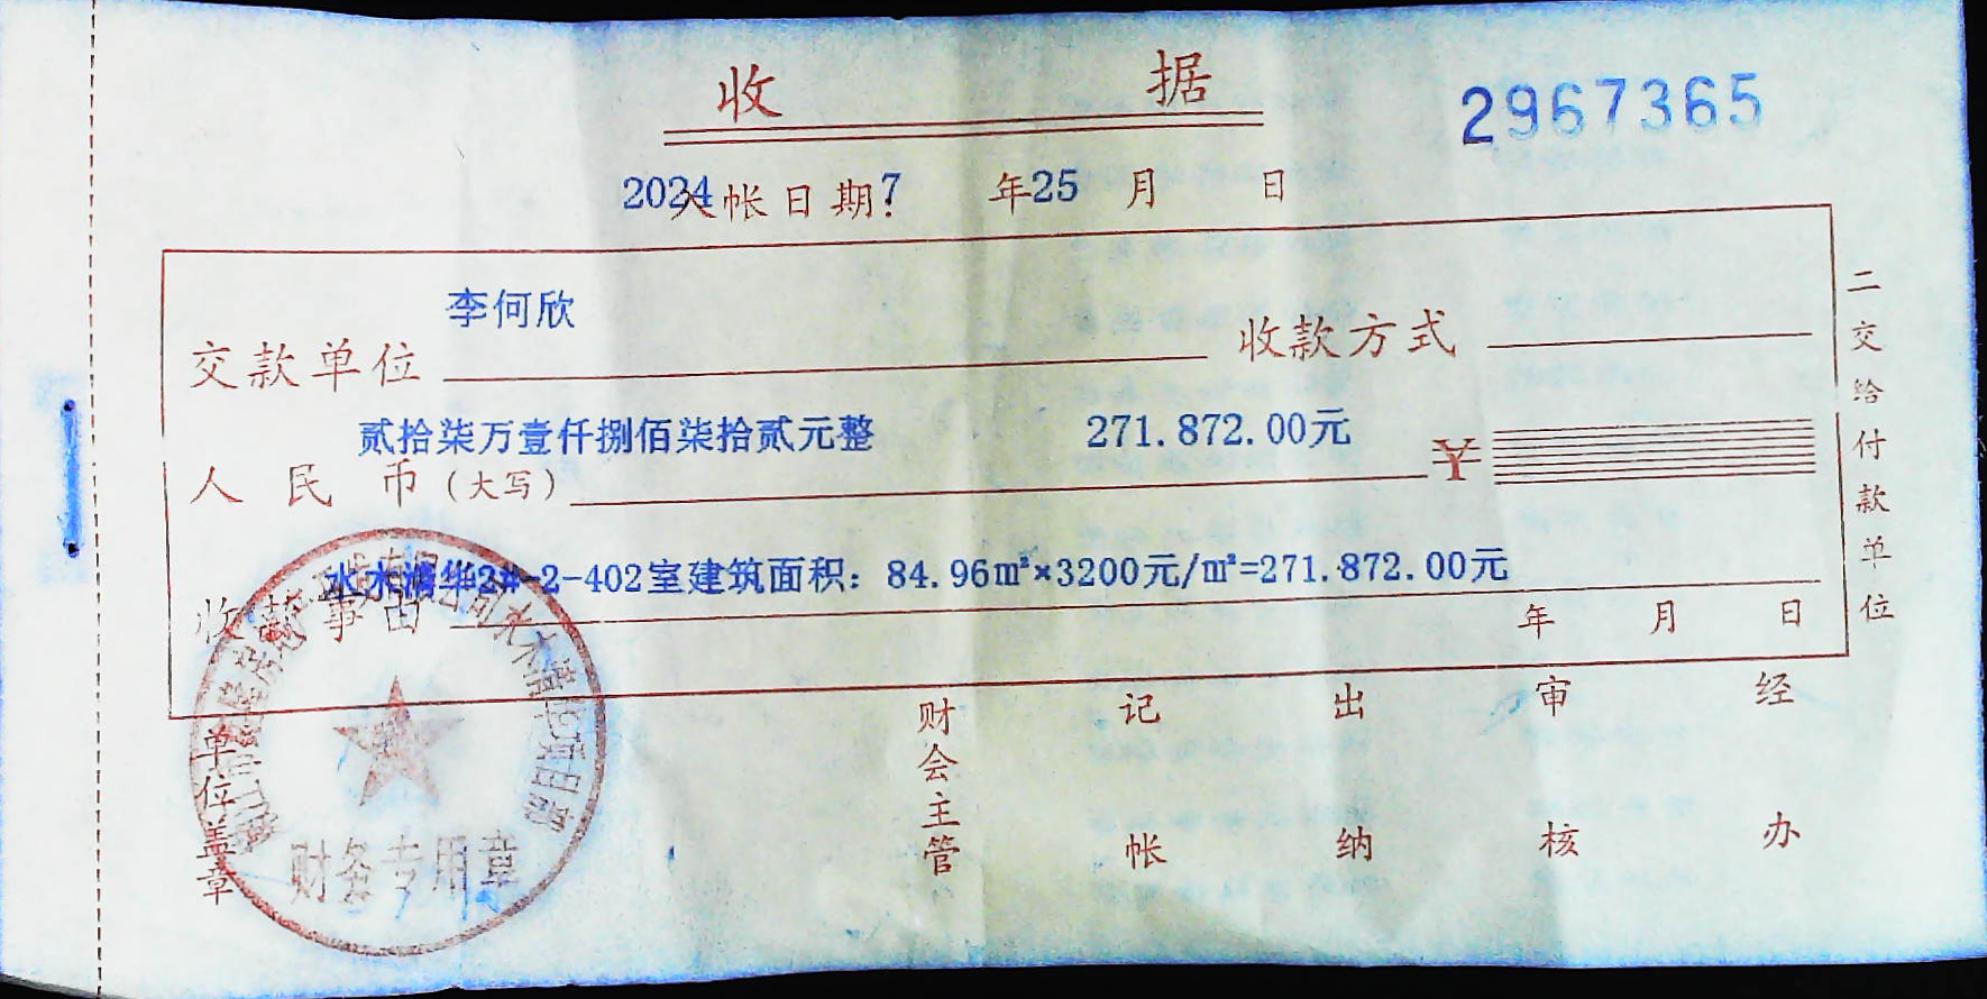 收 据
2967365
2024 入帐日期 7 年 25 月 日
李何欣
交款单位 收款方式
贰拾柒万壹仟捌佰柒拾贰元整 271.872.00元
人民币(大写) ¥
水木清华2#-2-402室建筑面积：84.96㎡×3200元/㎡=271.872.00元
收款事由
年 月 日
财会主管 记帐 出纳 审核 经办
单位盖章
水木清华项目部
财务专用章
二交给付款单位